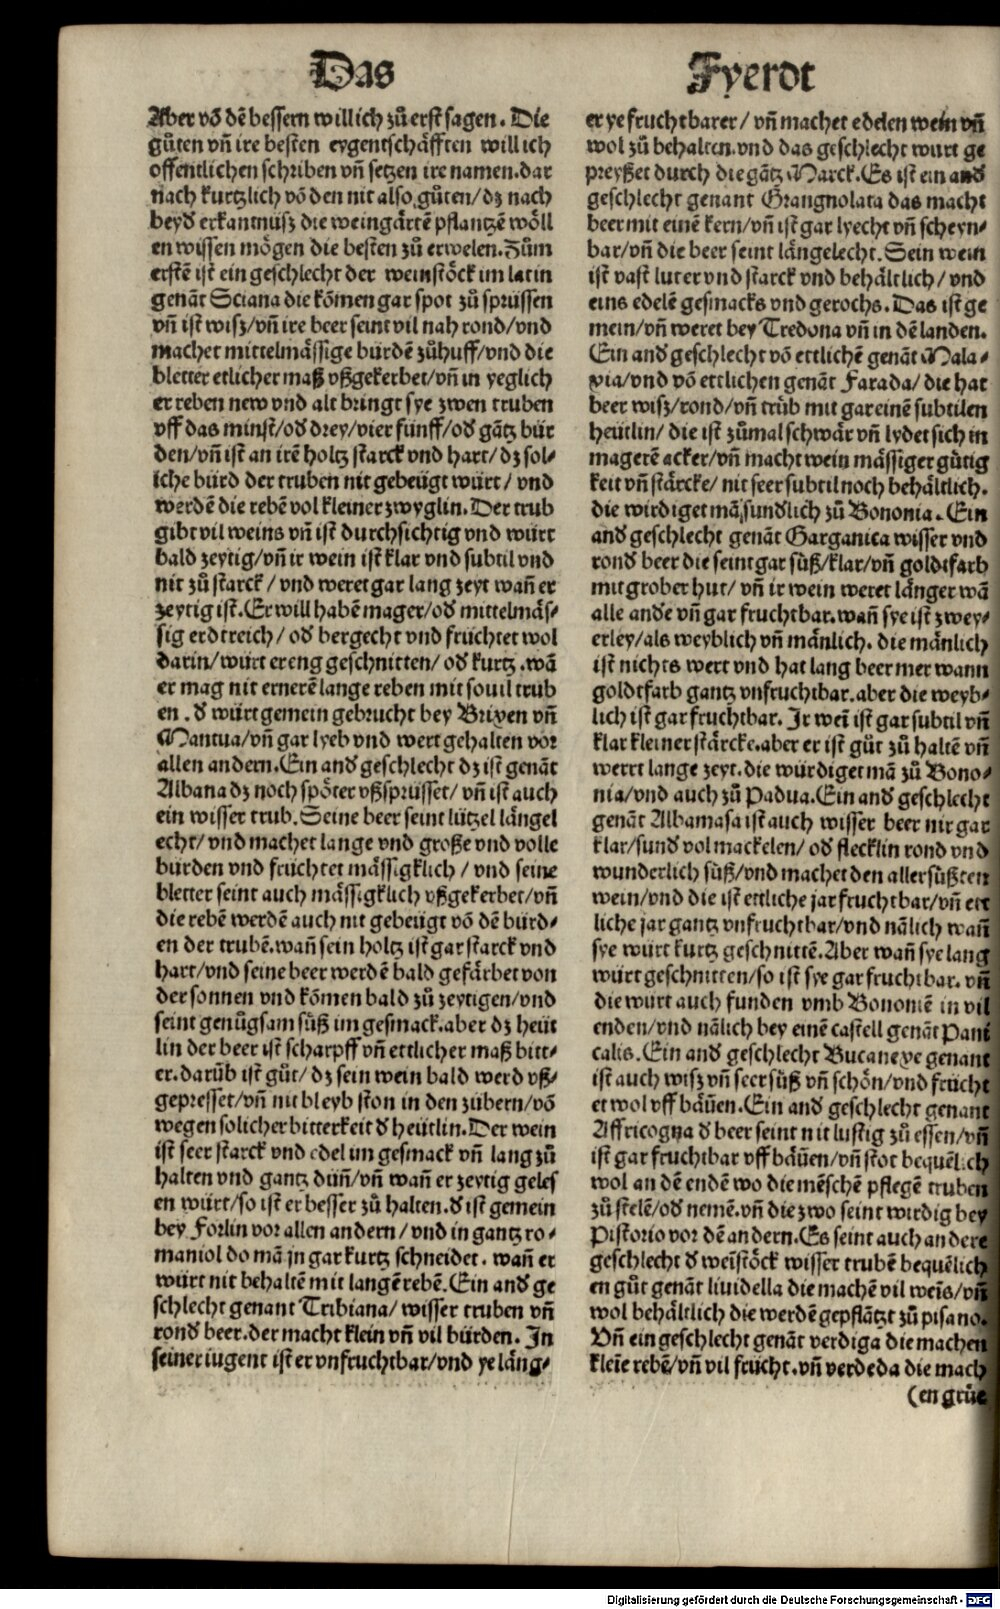 Das
Fyerdt
Aber võ dẽ bessern will ich zů erst sagen. Die
gůten vñ ire besten eygentschäfften will ich
offentlichen schriben vñ setzen ire namen. dar
nach kurtzlich võ den nit also gůten/ dz nach
beyd erkantnüsz die weingärtẽ pflantzẽ wöll
en wissen mögen die besten zů erwelen. Zům
erstẽ ist ein geschlecht der weinstöck im latin
genãt Sciana die kõmen gar spot zů sprüssen
vñ ist wisz/ vñ ire beer seint vil nah rond/ vnd
machet mittelmässige bürdẽ zůhuff/ vnd die
bletter etlicher maß vßgekerbet/ vñ in yeglich
er reben new vnd alt bringt sye zwen truben
vff das minst/ od drey/ vier fünff/ od gãtz bür
den/ vñ ist an irẽ holtz starck vnd hart/ dz sol⸗
iche bürd der truben nit gebeügt würt/ vnd
werdẽ die rebẽ vol kleiner zwyglin. Der trub
gibt vil weins vñ ist durchsichtig vnd würt
bald zeytig/ vñ ir wein ist klar vnd subtil vnd
nit zů starck/ vnd weret gar lang zeyt wañ er
zeytig ist. Er will habẽ mager/ od mittelmäs⸗
sig erdtreich/ od bergecht vnd früchtet wol
darin/ würt er eng geschnitten/ od kurtz. wã
er mag nit ernerẽ lange reben mit souil trub
en. d würt gemein gebrucht bey Brixen vñ
Mantua/ vñ gar lyeb vnd wert gehalten vor
allen andern. Ein and geschlecht dz ist genãt
Albana dz noch spöter vßsprüsset/ vñ ist auch
ein wisser trub. Seine beer seint lützel längel
echt/ vnd machet lange vnd große vnd volle
bürden vnd früchtet mässigklich/ vnd seine
bletter seint auch mässigklich vßgekerbet/ vñ
die rebẽ werdẽ auch nit gebeügt võ dẽ bürd⸗
en der trubẽ. wañ sein holtz ist gar starck vnd
hart/ vnd seine beer werdẽ bald gefärbet von
der sonnen vnd kõmen bald zů zeytigen/ vnd
seint genůgsam süß im gesmack. aber dz heüt
lin der beer ist scharpff vñ ettlicher maß bitt⸗
er. darüb ist gůt/ dz sein wein bald werd vß⸗
gepresset/ vñ nit bleyb ston in den zübern/ võ
wegen solicher bitterkeit d heütlin. Der wein
ist seer starck vnd edel im gesmack vñ lang zů
halten vnd gantz düñ/ vñ wañ er zeytig geles
en würt/ so ist er besser zů halten. d ist gemein
bey Forlin vor allen andern/ vnd in gantz ro⸗
maniol do mã jn gar kurtz schneidet. wañ er
würt nit behaltẽ mit langẽ rebẽ. Ein and ge
schlecht genant Tribiana/ wisser truben vñ
rond beer. der macht klein vñ vil bürden. In
seiner iugent ist er vnfruchtbar/ vnd ye läng⸗
er ye fruchtbarer/ vñ machet edelen wein vñ
wol zů behalten. vnd das geschlecht wurt ge
preyßet durch die gãtz Marck. Es ist ein and
geschlecht genant Grangnolata das macht
beer mit einẽ kern/ vñ ist gar lyecht vñ scheyn⸗
bar/ vñ die beer seint längelecht. Sein wein
ist vast luter vnd starck vnd behältlich/ vnd
eins edelẽ gesmacks vnd gerochs. Das ist ge
mein/ vñ weret bey Tredona vñ in dẽ landen.
Ein and geschlecht võ ettlichẽ genãt Mala⸗
xia/ vnd võ ettlichen genãt Farada/ die hat
beer wisz/ rond/ vñ trüb mit gar einẽ subtilen
heütlin/ die ist zůmal schwär vñ lydet sich in
magerẽ acker/ vñ macht wein mässiger gütig
keit vñ stärcke/ nit seer subtil noch behältlich.
die wirdiget mã sundlich zů Bononia. Ein
and geschlecht genãt Garganica wisser vnd
rond beer die seint gar süß/ klar/ vñ goldtfarb
mit grober hut/ vñ ir wein weret länger wã
alle ande vñ gar fruchtbar. wañ sye ist zwey⸗
erley/ als weyblich vñ mänlich. die mänlich
ist nichts wert vnd hat lang beer mer wann
goldtfarb gantz vnfruchtbar. aber die weyb⸗
lich ist gar fruchtbar. Ir weĩ ist gar subtil vñ
klar kleiner stärcke. aber er ist gůt zů haltẽ vñ
werrt lange zeyt. die würdiget mã zů Bono⸗
nia/ vnd auch zů Padua. Ein and geschlecht
genãt Albamasa ist auch wisser beer nit gar
klar/ sund vol mackelen/ od flecklin rond vnd
wunderlich süß/ vnd machet den allersüßten
wein/ vnd die ist ettliche jar fruchtbar/ vñ ett
liche jar gantz vnfruchtbar/ vnd nãlich wañ
sye würt kurtz geschnittẽ. Aber wañ sye lang
würt geschnitten/ so ist sye gar fruchtbar. vñ
die würt auch funden vmb Bononiẽ in vil
enden/ vnd nãlich bey einẽ castell genãt Pani
calis. Ein and geschlecht Bucanexe genant
ist auch wisz vñ seer süß vñ schön/ vnd frücht
et wol vff bäüen. Ein and geschlecht genant
Affricogna d beer seint nit lustig zů essen/ vñ
ist gar fruchtbar vff bäüen/ vñ stot bequẽlich
wol an dẽ endẽ wo die mẽschẽ pflegẽ truben
zů stelẽ/ od nemẽ. vñ die zwo seint wirdig bey
Pistorio vor dẽ andern. Es seint auch andere
geschlecht d weĩstöck wisser trubẽ bequẽlich
en gůt genãt liuidella die machẽ vil weĩs/ vñ
wol behältlich die werdẽ gepflãtzt zů pisano.
Vñ ein geschlecht genãt verdiga die machen
kleĩe rebẽ/ vñ vil frücht. vñ verdeda die mach
(en grüe
Digitalisierung gefördert durch die Deutsche Forschungsgemeinschaft - DFG